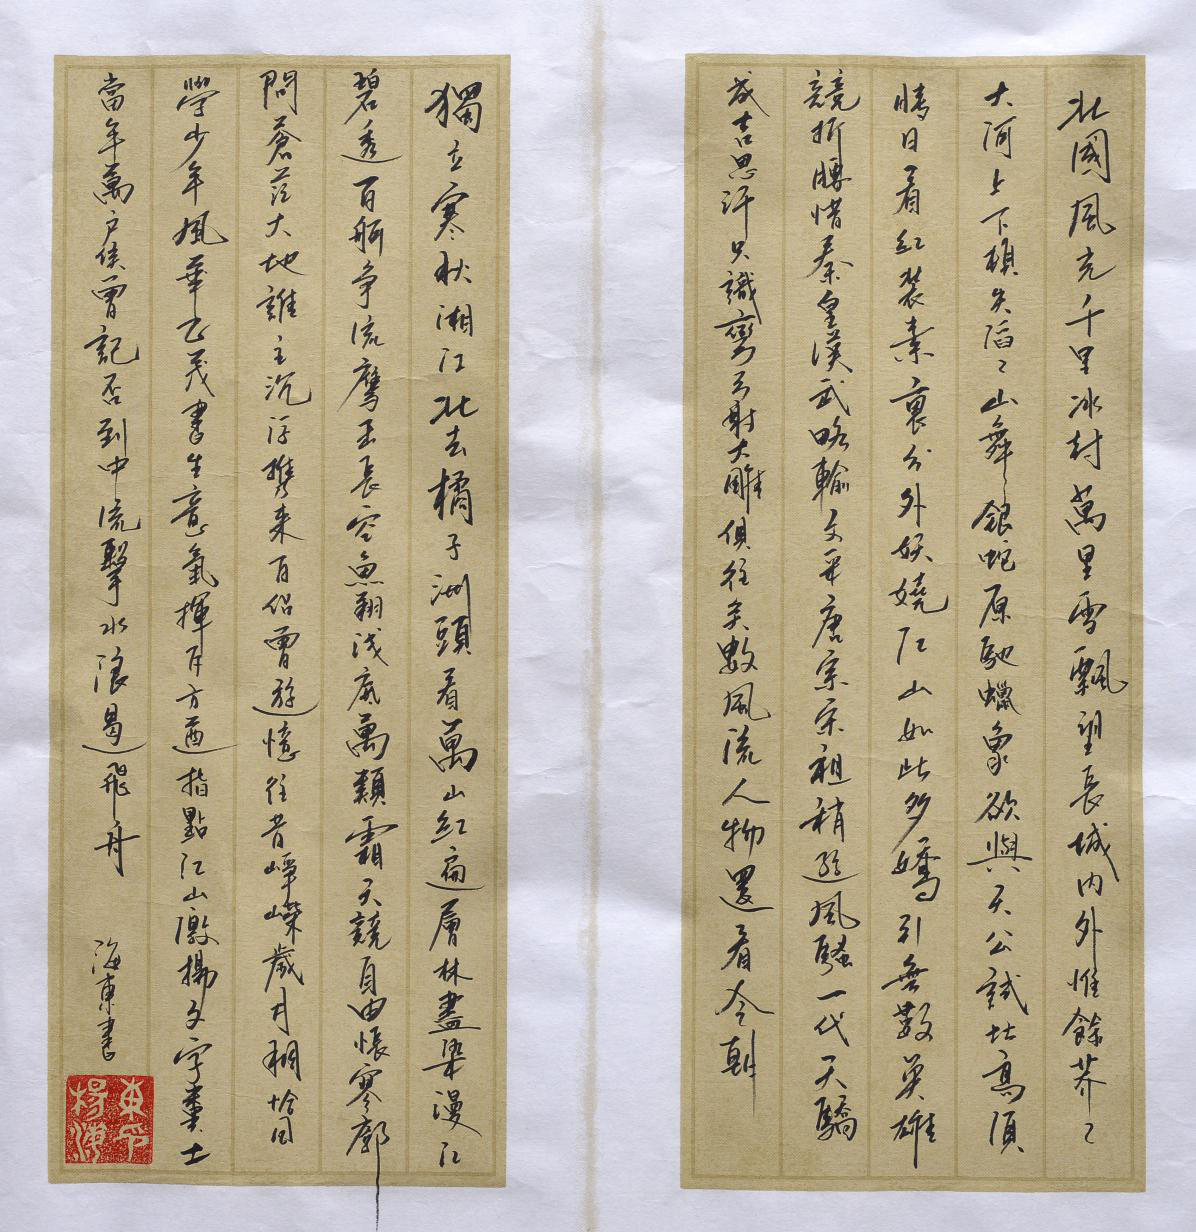 北國風光千里冰封萬里雪飄望長城內外惟餘莽〻
大河上下頓失滔〻山舞銀蛇原馳蠟象欲與天公試比高須
晴日看紅裝素裹分外妖嬈江山如此多嬌引無數英雄
競折腰惜秦皇漢武略輸文采唐宗宋祖稍遜風騷一代天驕
成吉思汗只識彎弓射大雕俱往矣數風流人物還看今朝
獨立寒秋湘江北去橘子洲頭看萬山紅遍層林盡染漫江
碧透百舸爭流鷹擊長空魚翔淺底萬類霜天競自由悵寥廓
問蒼茫大地誰主沉浮攜來百侶曾遊憶往昔崢嶸歲月稠恰同
學少年風華正茂書生意氣揮斥方遒指點江山激揚文字糞土
當年萬戶侯曾記否到中流擊水浪遏飛舟
海東書
楊海
東印